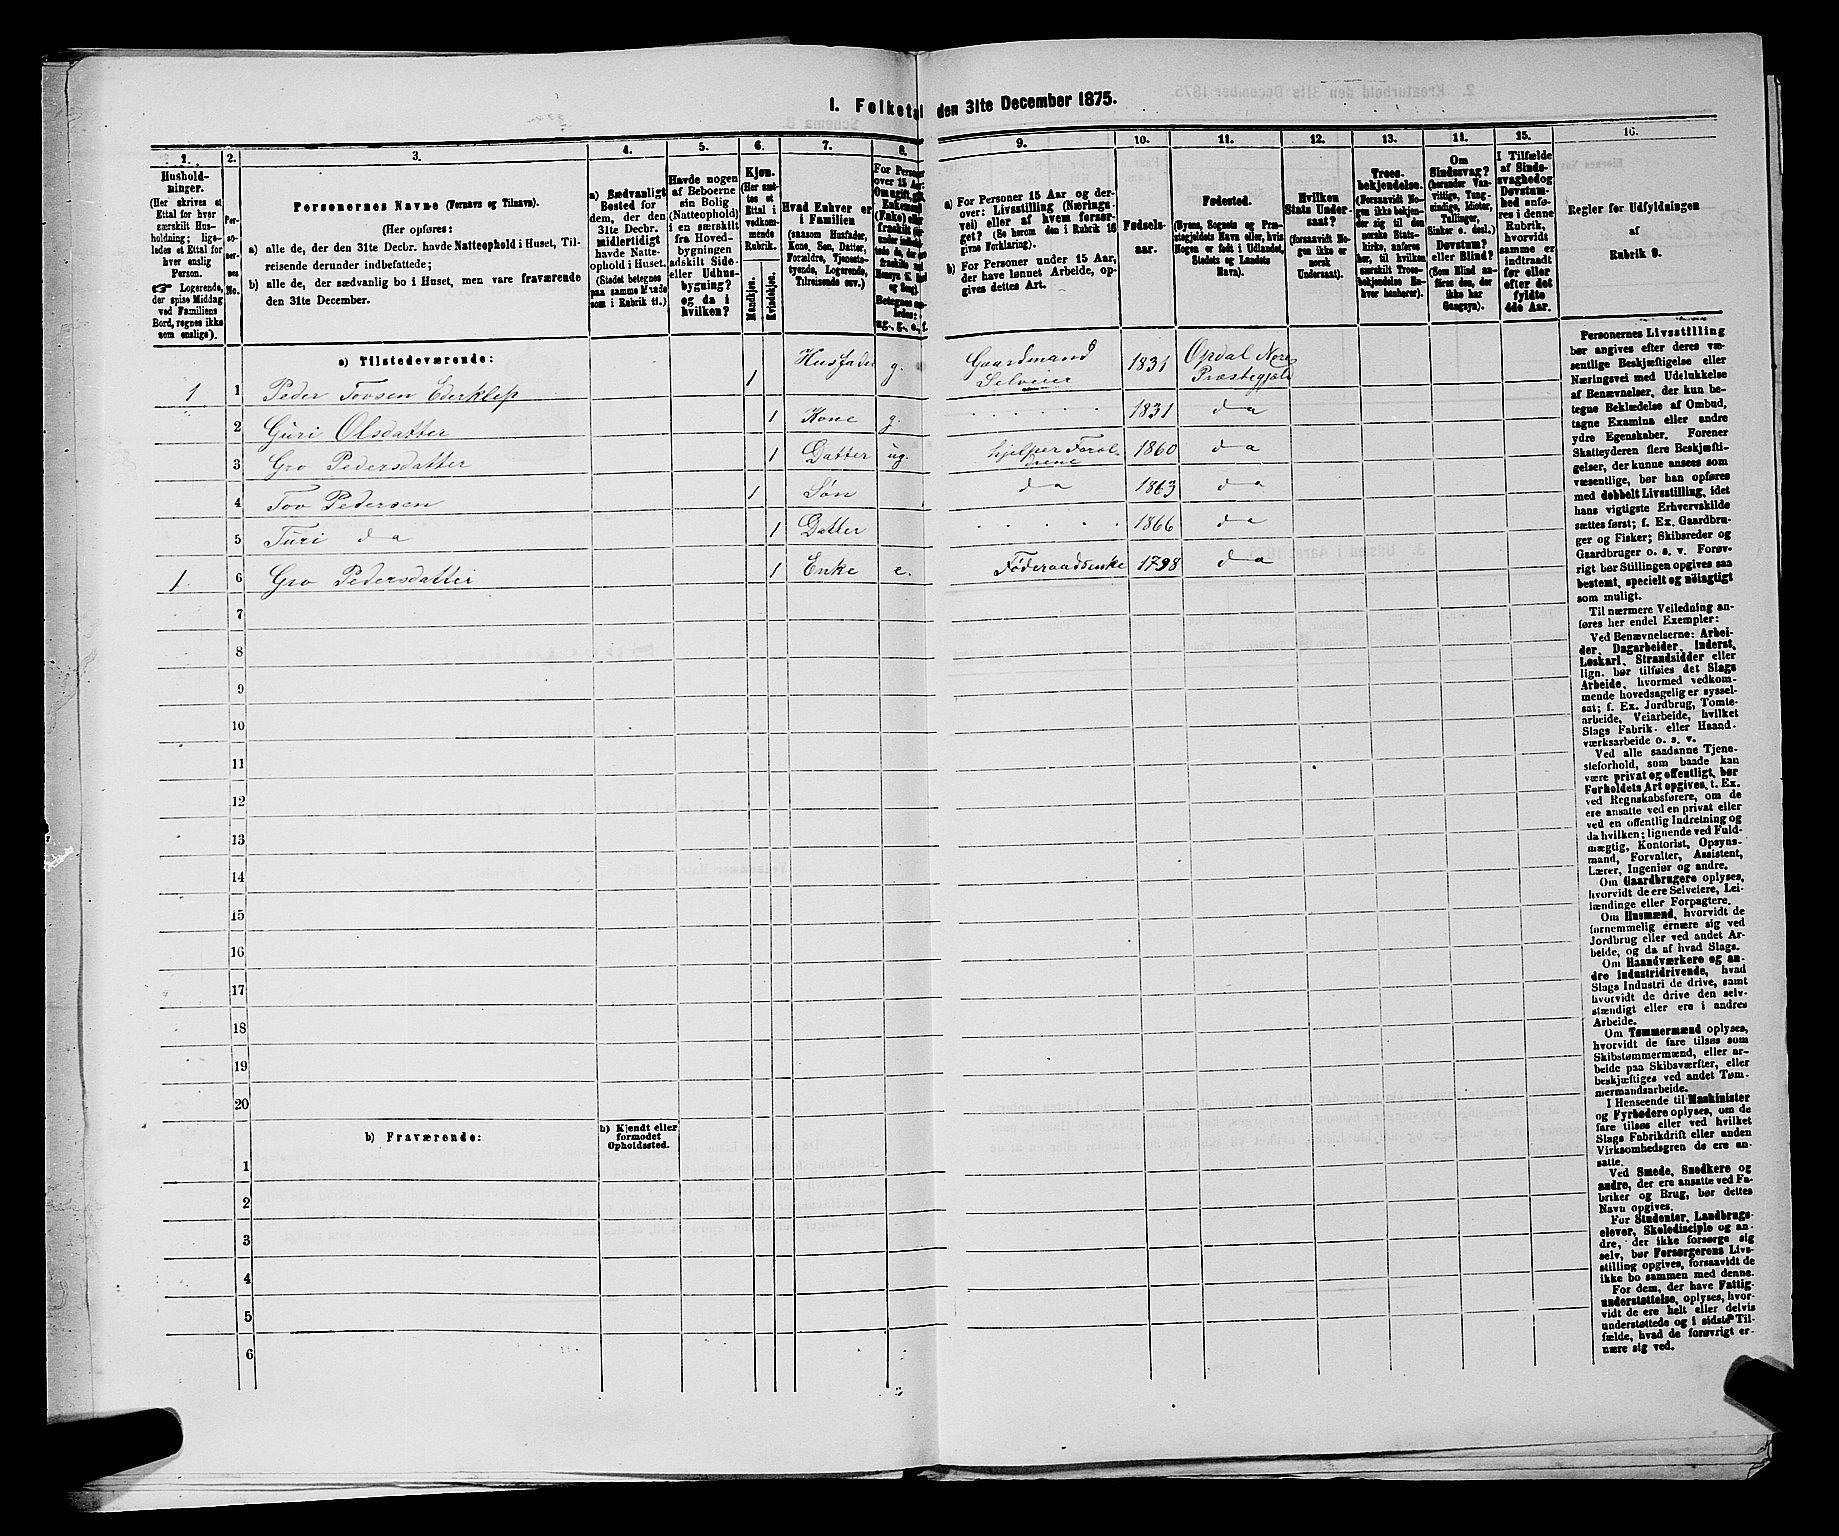 I. Folketal den 31te December 1875.
1.
Hushold-
ninger.
(Her skrives et
Ettal for hver
særskilt Hus-
holdning; lige-
ledes et Ettal for
hver enslig
Person.
☛ Logerende,
der spise Middag
ved Familiens
Bord, regnes ikke
som enslige).
2.
Per-
so-
ner-
nes
No.
3.
Personernes Navne (Fornavn og Tilnavn).
(Her opføres:
a) alle de, der den 31te Decbr. havde Natteophold i Huset, Til-
reisende derunder indbefattede;
b) alle de, der sædvanlig bo i Huset, men vare fraværende
den 31te December.
4.
a) Sædvanligt
Bosted for
dem, der den
31te Decbr.
midlertidigt
havde Natte-
ophold i Huset.
(Stedet betegnes
paa samme Maade
som i Rubrik 11.)
5.
Havde nogen
af Beboerne
sin Bolig
(Natteophold)
i en særskilt
fra Hoved-
bygningen
adskilt Side-
eller Udhus-
bygning?
og da i
hvilken?
6.
Kjøn.
(Her sæt-
tes et
Ettal i
vedkom-
mende
Rubrik.
Mandkjøn.
Kvindekjøn.
7.
Hvad Enhver er
i Familien
(saasom Husfader,
Kone, Søn, Datter,
Forældre, Tjeneste-
tyende, Logerende,
Tilreisende osv.)
8.
9.
a) For Personer 15 Aar og der-
over: Livsstilling (Nærings-
vei) eller af hvem forsør-
get? (Se herom den i Rubrik 16
givne Forklaring).
b) For Personer under 15 Aar,
der have lønnet Arbeide, op-
gives dettes Art.
10.
Fødsels-
aar.
11.
Fødested.
(Byens, Sognets og Præ-
stegjeldets Navn eller, hvis
Nogen er født i Udlandet,
Stedets og Landets
Navn).
12.
Hvilken
Stats Under-
saat?
(forsaavidt No-
gen ikke er
norsk
Undersaat).
13.
Troes-
bekjendelse.
(Forsaavidt No-
gen ikke bekjen-
der sig til den
norske Stats-
kirke, anføres
her, til hvilken
særskilt Troes-
bekjendelse En-
hver henhører).
14.
Om
Sindssvag?
(herunder Van-
vittige, Tung-
sindige, Idioter,
Tullinger,
Sinker o. desl.)
Døvstum?
eller Blind?
(Som Blind an-
føres den, der
ikke har
Gangsyn).
15.
I Tilfælde
af Sinds-
svaghed og
Døvstum-
hed anfø-
res i denne
Rubrik,
hvorvidt
samme er
indtraadt
før eller
efter det
fyldte
4de Aar.
16.
Regler for Udfyldningen
af
Rubrik 9.
a) Tilstedeværende:
1 1 Peder Tovsen Ederklep 1 Husfader g. Gaardmand Selveier 1831 Opdal Nores Præstegjæld
2 Guri Olsdatter 1 Kone g. · · · · · 1831 da
3 Gro Pedersdatter 1 Datter ug. hjelper Foræl-drene 1860 da
4 Tov Pedersen 1 Søn da 1863 da
5 Turi da 1 Datter · · · · · 1866 da
1. 6 Gro Pedersdatter 1 Enke e. Føderaadsenke 1798 da
7
8
9
10
11
12
13
14
15
16
17
18
19
20
b) Fraværende:
b) Kjendt eller
formodet
Opholdssted.
1
2
3
4
5
6
Personernes Livsstilling
bør angives efter deres væ-
sentlige Beskjæftigelse eller
Næringsvei med Udelukkelse
af Benævnelser, der kun be-
tegne Beklædelse af Ombud,
tagne Examina eller andre
ydre Egenskaber. Forener
Skatteyderen flere Beskjæfti-
gelser, der kunne ansees som
væsentlige, bør han opføres
med dobbelt Livsstilling, idet
hans vigtigste Erhvervskilde
sættes først; f. Ex. Gaardbru-
ger og Fisker; Skibsreder og
Gaardbruger o. s. v. Forøv-
rigt bør Stillingen opgives saa
bestemt, specielt og nøiagtigt
som muligt.
Til nærmere Veiledning an-
føres her endel Exempler:
Ved Benævnelserne: Arbei-
der, Dagarbeider, Inderst,
Løskarl, Strandsidder eller
lign. bør tilføies det Slags
Arbeide, hvormed vedkom-
mende hovedsagelig er syssel-
sat; f. Ex. Jordbrug, Tomte-
arbeide, Veiarbeide, hvilket
Slags Fabrik- eller Haand-
værksarbeide o. s. v.
Ved alle saadanne Tjene-
steforhold, som baade kan
være privat og offentligt, bør
Forholdets Art opgives, t. Ex.
ved Regnskabsførere, om de
ere ansatte ved en privat eller
ved en offentlig Indretning og
da hvilken; lignende ved Fuld-
mægtig, Kontorist, Opsyns-
mand, Forvalter, Assistent,
Lærer, Ingeniør og andre.
Om Gaardbrugere oplyses,
hvorvidt de ere Selveiere, Lei-
lændinge eller Forpagtere.
Om Husmænd, hvorvidt de
fornemmelig ernære sig ved
Jordbrug eller ved andet Ar-
beide, og da af hvad Slags.
Om Haandværkere og an-
dre Industridrivende, hvad
Slags Industri de drive, samt
hvorvidt de drive den selv-
stændigt eller ere i andres
Arbeide.
Om Tømmermænd oplyses,
hvorvidt de fare tilsøs som
Skibstømmermænd, eller ar-
beide paa Skibsværfter, eller
beskjæftiges ved andet Tøm-
mermandsarbeide.
I Henseende til Maskinister
og Fyrbødere oplyses, om de
fare tilsøs eller ved hvilket
Slags Fabrikdrift eller anden
Virksomhedsgren de ere an-
satte.
Ved Smede, Snedkere og
andre, der ere ansatte ved Fa-
briker og Brug, bør dettes
Navn opgives.
For Studenter, Landbrugs-
elever, Skoledisciple og an-
dre, der ikke forsørge sig
selv, bør Forsørgerens Livs-
stilling opgives, forsaavidt de
ikke bo sammen med denne.
For dem, der have Fattig-
understøttelse, oplyses, hvor-
vidt de ere helt eller delvis
understøttede og i sidste Til-
fælde, hvad de forøvrigt er-
nære sig ved.